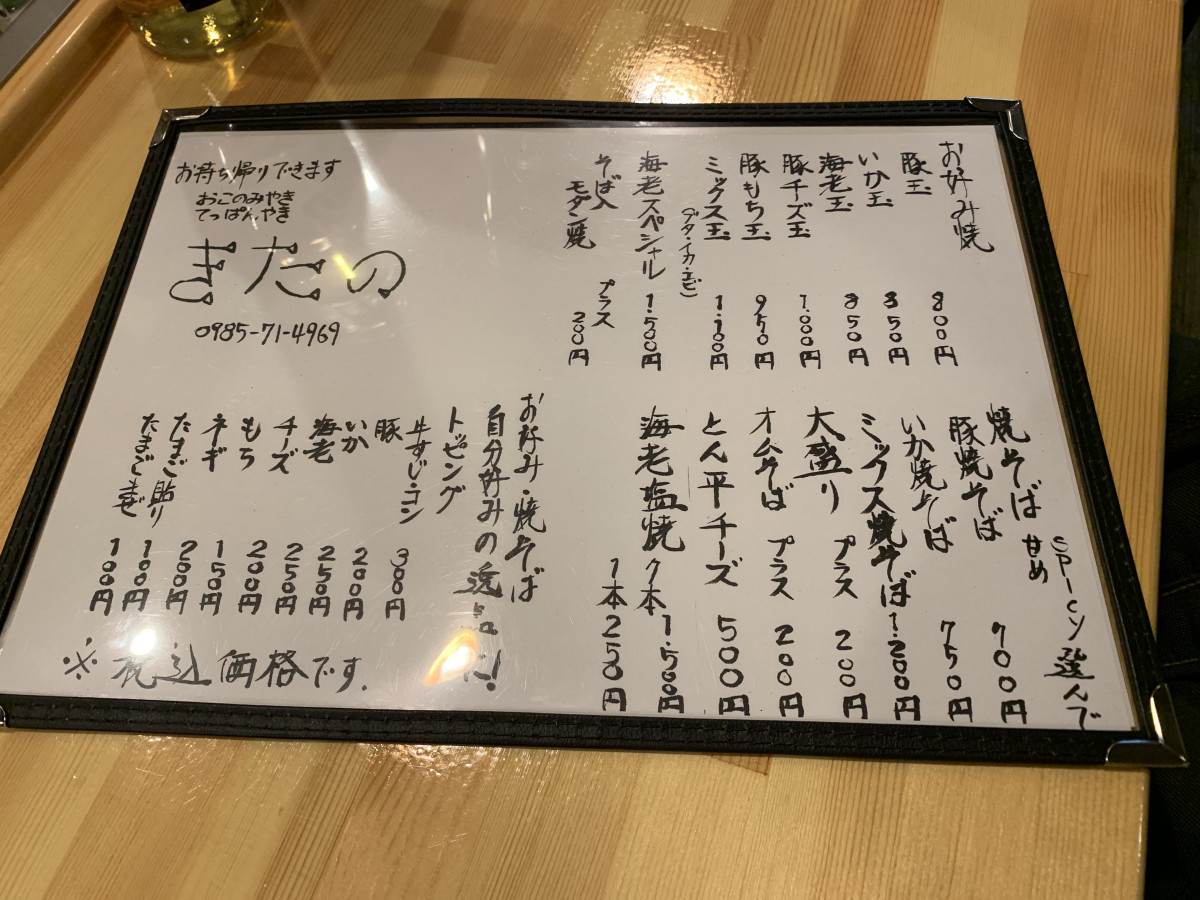 お好み焼
豚玉 800円
いか玉 850円
海老玉 850円
豚チーズ玉 1.000円
豚もち玉 950円
ミックス玉 1.100円
(ブタ・イカ・エビ)
海老スペシャル 1.500円
そば入 プラス
モダン焼 200円
焼そば 甘め spicy 選んで
豚焼そば 700円
いか焼そば 750円
ミックス焼そば 1.200円
大盛り プラス 200円
オムそば プラス 200円
とん平チーズ 500円
海老塩焼 7本 1.500円
1本 250円
お持ち帰りできます
おこのみやき
てっぱんやき
きたの
0985-71-4969
お好み・焼そば
自分好みの逸品に!
トッピング
牛すじ・コン 300円
豚 200円
いか 250円
海老 250円
チーズ 200円
もち 150円
ネギ 200円
たまご貼り 100円
たまごまぜ 100円
※ 税込価格です.